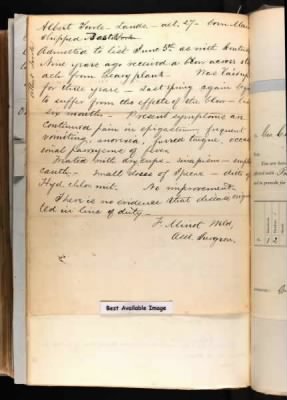 Albert Towle – Lands – aet. 27 – born Me
Shipped Boston
Admitted to list June 5th as with
Nine years ago received a blow across stom
ach from heavy plank. Was
for three years – Last spring again beg
to suffer from the effects of the blow –
six months – Present symptoms are
Continued pain in epigastrium, frequent
vomiting, anorexia, furred tongue, occas
ional paroxysms of fever.
Treated with dry cups – sinapisms –
canth – Small doses of Ipecac –
Hyd. chlor. mit. No improvement.
There is no evidence that disease origina
ted in line of duty –
F. Minot Weld,
Asst. Surgeon.
Best Available Image